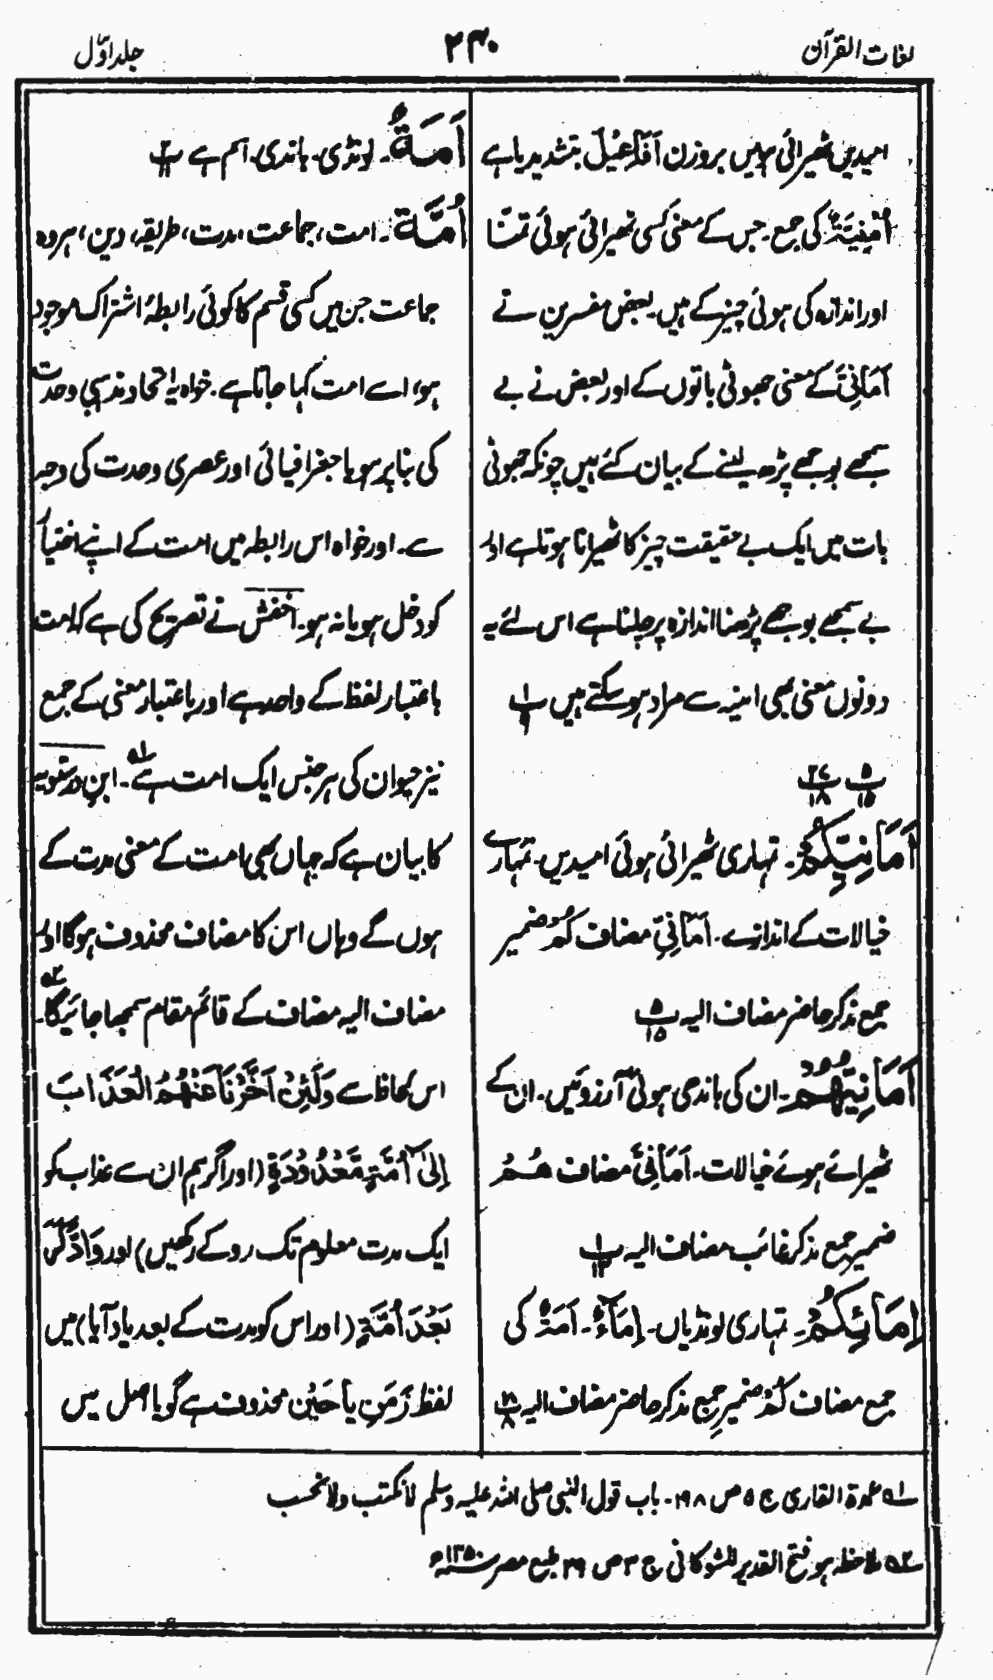 لغات القرآن
۲۴۰
جلد اوّل
امیدیں ٹھیرائی ہوئیں بروزن اَفَاعِیْلَ بتشدید یا ہے
اُمْنِیَّۃٌ کی جمع۔ جس کے معنی کسی ٹھیرائی ہوئی تمنّا
اور اندازہ کی ہوئی چیز کے ہیں۔ بعض مفسرین نے
اَمَانِیَّ کے معنی جھوٹی باتوں کے اور بعض نے بے
سمجھے بوجھے پڑھ لینے کے بیان کئے ہیں چونکہ جھوٹی
بات میں ایک بے حقیقت چیز کا ٹھیرانا ہوتا ہے اور
بے سمجھے بوجھے پڑھنا اندازہ پر چلنا ہے اس لئے یہ
دونوں معنی بھی امنیہ سے مراد ہو سکتے ہیں پ ۱ ۹
پ ۵ ۱۵ پ ۲۷ ۱۸
اَمَانِیِّکُمْ۔ تمہاری ٹھیرائی ہوئی امیدیں۔ تمہارے
خیالات کے اندازے۔ اَمَانِیِّ مضاف کُمْ ضمیر
جمع مذکر حاضر مضاف الیہ پ ۵ ۱۵
اَمَانِیُّهُمْ۔ ان کی باندھی ہوئی آرزوئیں۔ ان کے
ٹھیرائے ہوئے خیالات۔ اَمَانِیُّ مضاف هُمْ
ضمیر جمع مذکر غائب مضاف الیہ پ ۱ ۱۳
اِمَائِکُمْ۔ تمہاری لونڈیاں۔ اِمَاءٌ۔ اَمَۃٌ کی
جمع مضاف کُمْ ضمیر جمع مذکر حاضر مضاف الیہ پ ۱۸
اَمَۃٌ۔ لونڈی۔ باندی۔ اسم ہے پ ۲ ۱۱
اُمَّۃٌ۔ امت، جماعت، مدت، طریقہ، دین، ہر وہ
جماعت جن میں کسی قسم کا کوئی رابطۂ اشتراک موجود
ہو، اسے امت کہا جاتا ہے۔ خواہ یہ اتحاد مذہبی وحدت
کی بنا پر ہو یا جغرافیائی اور عصری وحدت کی وجہ
سے۔ اور خواہ اس رابطہ میں امت کے اپنے اختیار
کو دخل ہو یا نہ ہو۔ اخفش نے تصریح کی ہے کہ امت
باعتبار لفظ کے واحد ہے اور باعتبار معنی کے جمع
نیز حیوان کی ہر جنس ایک امت ہے ؎۱۔ ابن درستویہ
کا بیان ہے کہ جہاں بھی امت کے معنی مدت کے
ہوں گے وہاں اس کا مضاف محذوف ہوگا اور
مضاف الیہ مضاف کے قائم مقام سمجھا جائیگا ؎۲۔
اس لحاظ سے وَلَئِنْ اَخَّرْنَا عَنْهُمُ الْعَذَابَ
اِلٰی اُمَّةٍ مَّعْدُوْدَةٍ (اور اگر ہم ان سے عذاب کو
ایک مدت معلوم تک روکے رکھیں) اور وَادَّکَرَ
بَعْدَ اُمَّةٍ (اور اس کو مدت کے بعد یاد آیا) میں
لفظ زَمَنٍ یا حَیْنٍ محذوف ہے گویا اصل میں
؎۱ عمدۃ القاری ج ۵ ص ۱۹۸۔ باب قول النبی صلی اللہ علیہ وسلم لانکتب ولانحسب
؎۲ ملاحظہ ہو فتح القدیر للشوکانی ج ۳ ص ۲۹ طبع مصر ۱۳۵۰ھ